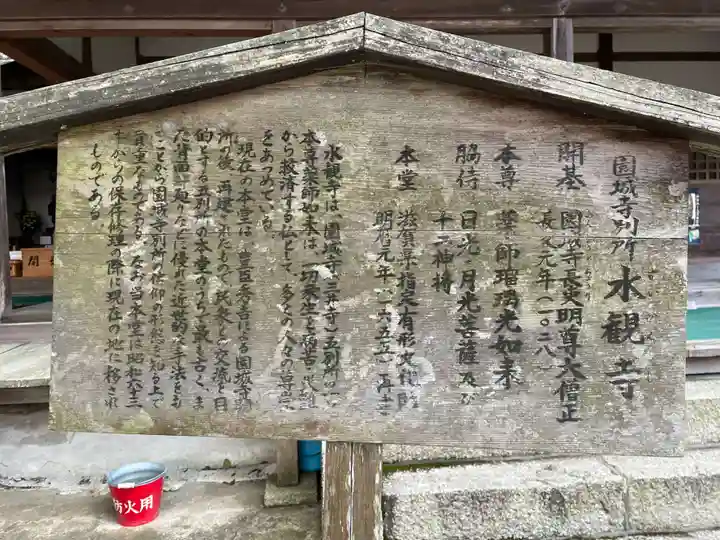 園城寺別所 水観寺
開基 園城寺長吏明尊大僧正
長元元年(一〇二八)
本尊 薬師瑠璃光如来
脇侍 日光・月光菩薩 及び
十二神将
本堂 滋賀県指定有形文化財
明暦元年(一六五五)再建
水観寺は、園城寺(三井寺)五別所の一つ
本尊薬師如来は、一切衆生を病苦・災難
から救済する仏として、多くの人々の尊崇
をあつめている。
現在の本堂は、豊臣秀吉による園城寺闕
所後、再建されたもので、民衆との交流を目
的とする五別所の本堂のうちで最も古く、ま
た背面の庇
優れた近世的な手法をも
つことから園城寺別所の信仰の形態を知る上で
貴重なものである。なお当本堂は昭和六十三
年からの保存修理の際に現在の地に移され
ものである
防火用